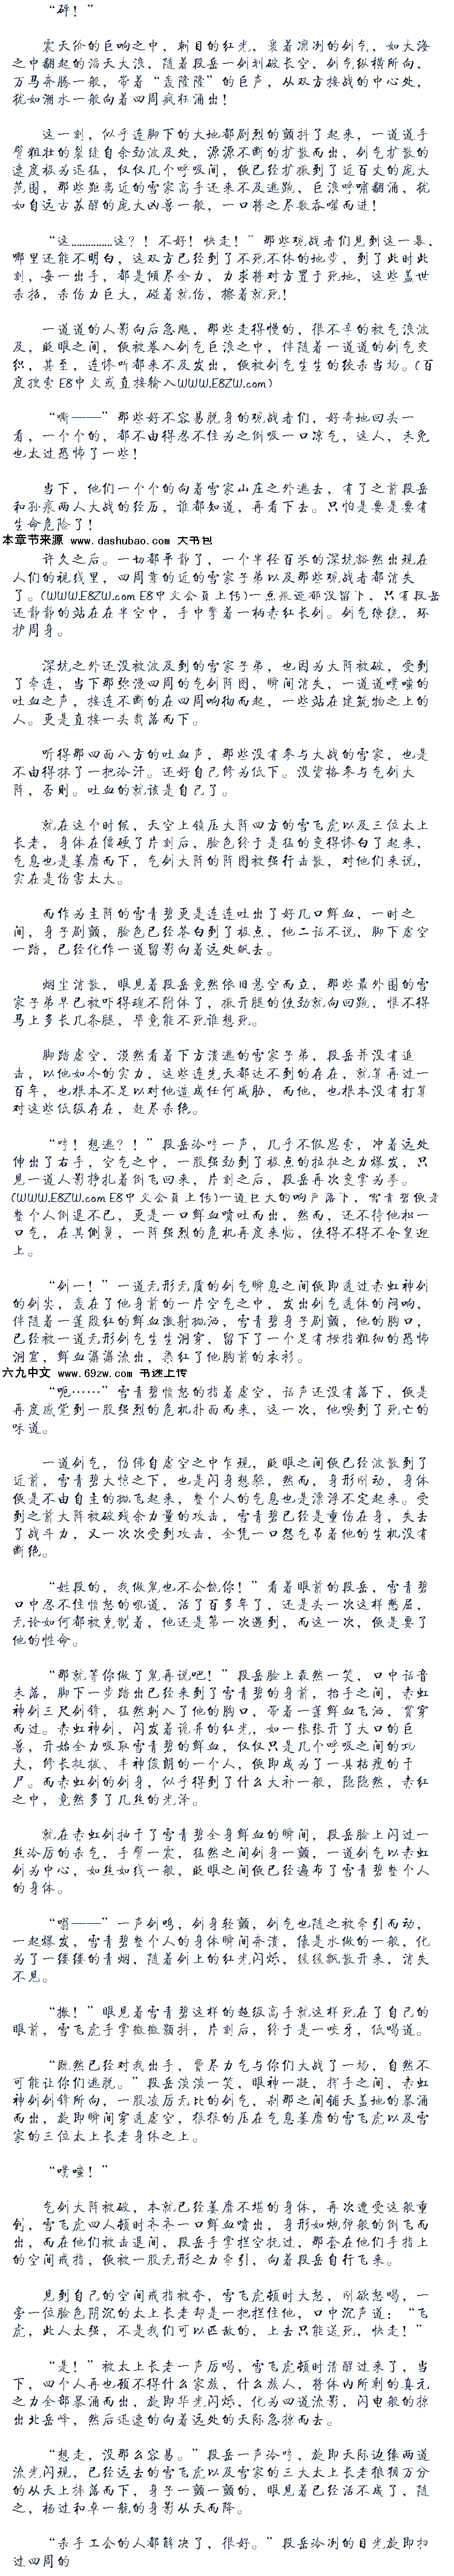 “砰！”
震天价的巨响之中，刺目的红光，裹着凛冽的剑气，如大海
之中翻起的滔天大浪，随着段岳一剑划破长空，剑气纵横所向，
万马奔腾一般，带着“轰隆隆”的巨声，从双方接战的中心处，
犹如潮水一般向着四周疯狂涌出！
这一刻，似乎连脚下的大地都剧烈的颤抖了起来，一道道手
臂粗壮的裂缝自余劲波及处，源源不断的扩散而出，剑气扩散的
速度极为迅猛，仅仅几个呼吸间，便已经扩撒到了近百丈的庞大
范围，那些距离近的雪家高手还来不及逃跑，巨浪呼啸翻涌，犹
如自远古苏醒的庞大凶兽一般，一口将之尽数吞噬而进！
“这……………这？！不好！快走！”那些观战者们见到这一幕，
哪里还能不明白，这双方已经到了不死不休的地步，到了此时此
刻，每一出手，都是倾尽全力，力求将对方置于死地，这些盖世
杀招，杀伤力巨大，碰着就伤，擦着就死！
一道道的人影向后急飚，那些走得慢的，很不幸的被气浪波
及，眨眼之间，便被卷入剑气巨浪之中，伴随着一道道的剑气交
织，甚至，连惨叫都来不及发出，便被剑气生生的绞杀当场。(百
度搜索 E8中文或直接输入WWW.E8ZW.com)
“嘶——”那些好不容易脱身的观战者们，好奇地回头一
看，一个个的，都不由得忍不住为之倒吸一口凉气，这人，未免
也太过恐怖了一些！
当下，他们一个个的向着雪家山庄之外逃去，有了之前段岳
和孙痕两人大战的经历，谁都知道，再看下去。只怕是要是要有
生命危险了！
本章节来源 www.dashubao.com 大书包
许久之后。一切都平静了，一个半径百米的深坑豁然出现在
人们的视线里，四周靠的近的雪家子弟以及那些观战者都消失
了。(WWW.E8ZW.com E8中文会员上传)一点痕迹都没留下，只有段岳
还静静的站在在半空中，手中擎着一柄赤红长剑。剑气缭绕，环
护周身。
深坑之外还没被波及到的雪家子弟，也因为大阵被破，受到
了牵连，当下那弥漫四周的气剑阵图，瞬间消失，一道道噗嗤的
吐血之声，接连不断的在四周响彻而起，一些站在建筑物之上的
人。更是直接一头栽落而下。
听得那四面八方的吐血声，那些没有参与大战的雪家，也是
不由得抹了一把冷汗。还好自己修为低下。没资格参与气剑大
阵，否则。吐血的就该是自己了。
就在这个时候，天空上镇压大阵四方的雪飞虎以及三位太上
长老，身体在僵硬了片刻后，脸色终于是猛的变得惨白了起来，
气息也是萎靡而下，气剑大阵的阵图被强行击散，对他们来说，
实在是伤害太大。
而作为主阵的雪青碧更是连连吐出了好几口鲜血，一时之
间，身子剧颤，脸色已经苍白到了极点，他二话不说，脚下虚空
一踏，已经化作一道留影向着远处飙去。
烟尘消散，眼见着段岳竟然依旧悬空而立，那些最外围的雪
家子弟早已被吓得魂不附体了，撒开腿的使劲就向回跑，恨不得
马上多长几条腿，毕竟能不死谁想死。
脚踏虚空，漠然看着下方溃逃的雪家子弟，段岳并没有追
击，以他如今的实力，这些连先天都达不到的存在，就算再过一
百年，也根本不足以对他造成任何威胁，而他，也根本没有打算
对这些低级存在，赶尽杀绝。
“哼！想逃？！”段岳冷哼一声，几乎不假思索，冲着远处
伸出了右手，空气之中，一股强劲到了极点的拉扯之力爆发，只
见一道人影挣扎着倒飞回来，片刻之后，段岳再次变掌为拳。
(WWW.E8ZW.com E8中文会员上传)一道巨大的响声落下，雪青碧便是
整个人倒退不已，更是一口鲜血喷吐而出，然而，还不待他松一
口气，在其侧翼，一阵强烈的危机再度来临，使得不得不仓皇迎
上。
“剑一！”一道无形无质的剑气瞬息之间便即透过赤虹神剑
的剑尖，轰在了他身前的一片空气之中，发出剑气透体的闷响，
伴随着一蓬殷红的鲜血激射抛洒，雪青碧身子剧颤，他的胸口，
已经被一道无形剑气生生洞穿，留下了一个足有拇指粗细的恐怖
洞窟，鲜血潺潺流出，染红了他胸前的衣衫。
六九中文 www.69zw.com 书迷上传
“呃……”雪青碧愤怒的指着虚空，话声还没有落下，便是
再度感觉到一股强烈的危机扑面而来，这一次，他嗅到了死亡的
味道。
一道剑气，仿佛自虚空之中乍现，眨眼之间便已经波散到了
近前，雪青碧大惊之下，也是闪身想躲，然而，身形刚动，身体
便是不由自主的抛飞起来，整个人的气息也是漂浮不定起来。受
到之前大阵被破残余力量的攻击，雪青碧已经是重伤在身，失去
了战斗力，又一次次受到攻击，全凭一口怨气吊着他的生机没有
断绝。
“姓段的，我做鬼也不会饶你！”看着眼前的段岳，雪青碧
口中忍不住愤怒的吼道，活了百多年了，还是头一次这样憋屈，
无论如何都被克制着，他还是第一次遇到，而这一次，便是要了
他的性命。
“那就等你做了鬼再说吧！”段岳脸上森然一笑，口中话音
未落，脚下一步踏出已经来到了雪青碧的身前，抬手之间，赤虹
神剑三尺剑锋，猛然刺入了他的胸口，带着一蓬鲜血飞洒，贯穿
而过。赤虹神剑，闪发着诡异的红光，如一张张开了大口的巨
兽，开始全力吸取雪青碧的鲜血，仅仅只是几个呼吸之间的功
夫，修长挺拔、丰神俊朗的一个人，便即成为了一具枯瘦的干
尸。而赤虹剑的剑身，似乎得到了什么大补一般，隐隐然，赤红
之中，竟然多了几丝的光泽。
就在赤虹剑抽干了雪青碧全身鲜血的瞬间，段岳脸上闪过一
丝冷厉的杀气，手臂一震，猛然之间剑身一颤，一道剑气以赤虹
剑为中心，如丝如线一般，眨眼之间便已经遍布了雪青碧整个人
的身体。
“嗡——”一声剑鸣，剑身轻颤，剑气也随之被牵引而动，
一起爆发，雪青碧整个人的身体瞬间奔溃，像是水做的一般，化
为了一缕缕的青烟，随着剑上的红光闪烁，缓缓飘散开来，消失
不见。
“撤！”眼见着雪青碧这样的超级高手就这样死在了自己的
眼前，雪飞虎手掌微微颤抖，片刻后，终于是一咬牙，低喝道。
“既然已经对我出手，费尽力气与你们大战了一场，自然不
可能让你们逃脱。”段岳淡淡一笑，眼神一凝，挥手之间，赤虹
神剑剑锋所向，一股凌厉无比的剑气，刹那之间铺天盖地的暴涌
而出，旋即瞬间穿透虚空，狠狠的压在气息萎靡的雪飞虎以及雪
家的三位太上长老身体之上。
“噗嗤！”
气剑大阵被破，本就已经萎靡不堪的身体，再次遭受这般重
创，雪飞虎四人顿时齐齐一口鲜血喷出，身形如炮弹般的倒飞而
出，而在他们被击退间，段岳手掌拦空抚过，那套在他们手指上
的空间戒指，便被一股无形之力牵引，向着段岳自行飞来。
见到自己的空间戒指被夺，雪飞虎顿时大怒，刚欲怒喝，一
旁一位脸色阴沉的太上长老却是一把拦住他，口中沉声道：“飞
虎，此人太强，不是我们可以匹敌的，上去只能送死，快走！”
“是！”被太上长老一声厉喝，雪飞虎顿时清醒过来了，当
下，四个人再也顾不得什么家族，什么族人，将体内所剩的真元
之力全部暴涌而出，旋即华光闪烁，化为四道流影，闪电般的掠
出北岳峰，然后迅速的向着远处的天际急掠而去。
“想走，没那么容易。”段岳一声冷哼，旋即天际边缘两道
流光闪现，已经远去的雪飞虎以及雪家的三大太上长老狼狈万分
的从天上摔落而下，身子一颤一颤的，眼见着已经活不成了，随
之，杨过和卓一航的身影从天而降。
“杀手工会的人都解决了，很好。”段岳冷冽的目光旋即扫
过四周的